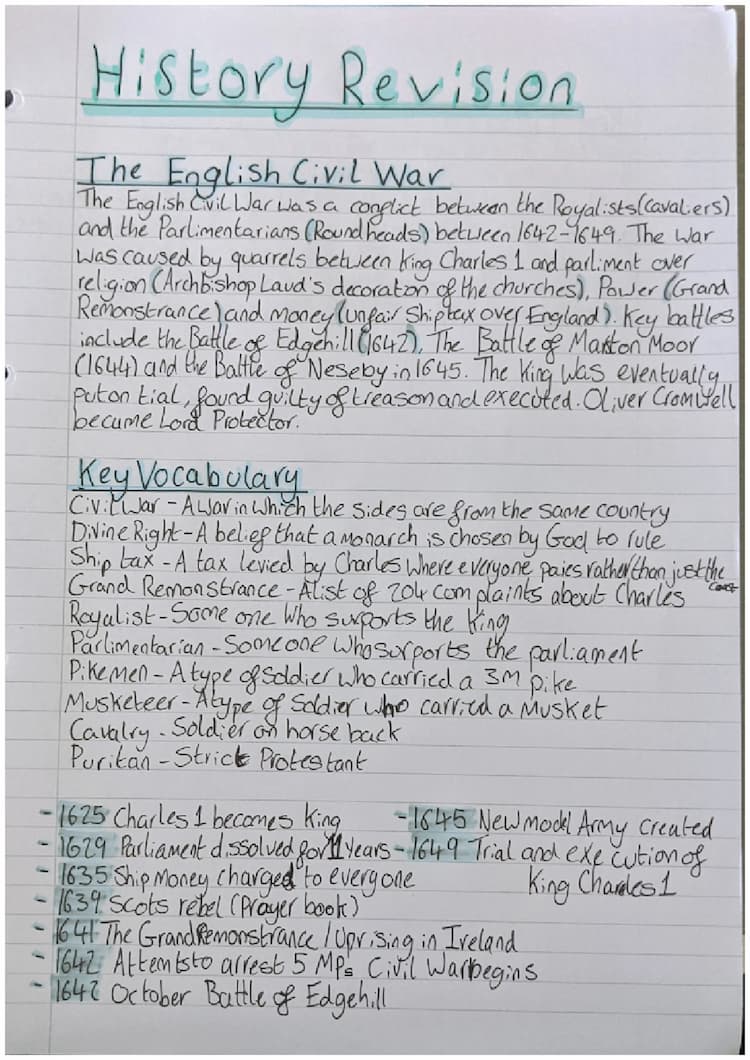 History Revision
The English Civil War
The English Civil War was a conflict between the Royalists (Cavaliers)
and the Parlimentarians (Roundheads) between 1642-1649. The War
was caused by quarrels between King Charles 1 and parliment over
religion (Archbishop Laud's decoration of the churches), Power (Grand
Remonstrance) and money (unfair Ship tax over England). Key battles
include the Battle of Edgehill (1642), The Battle of Marston Moor
(1644) and the Battle of Neseby in 1645. The King was eventually
put on trial, found guilty of treason and executed. Oliver Cromwell
became Lord Protector.
Key Vocabulary
Civil War - A war in which the sides are from the same country
Divine Right - A belief that a monarch is chosen by God to rule
Ship tax - A tax levied by Charles where everyone paies rather than just the
coast
Grand Remonstrance - A list of 204 complaints about Charles
Royalist - Some one who supports the King
Parlimentarian - Someone who supports the parliament
Pikemen - A type of soldier who carried a 3M pike
Musketeer - A type of Soldier who carried a Musket
Cavalry - Soldier on horse back
Puritan - Strict Protestant
- 1625 Charles 1 becomes King
- 1629 Parliament dissolved for 11 years
- 1635 Ship Money charged to everyone
- 1639 Scots rebel (Prayer book)
- 1641 The Grand Remonstrance / Uprising in Ireland
- 1642 Attemts to arrest 5 MPs Civil War begins
- 1642 October Battle of Edgehill
- 1645 New model Army created
- 1649 Trial and execution of
King Charles 1